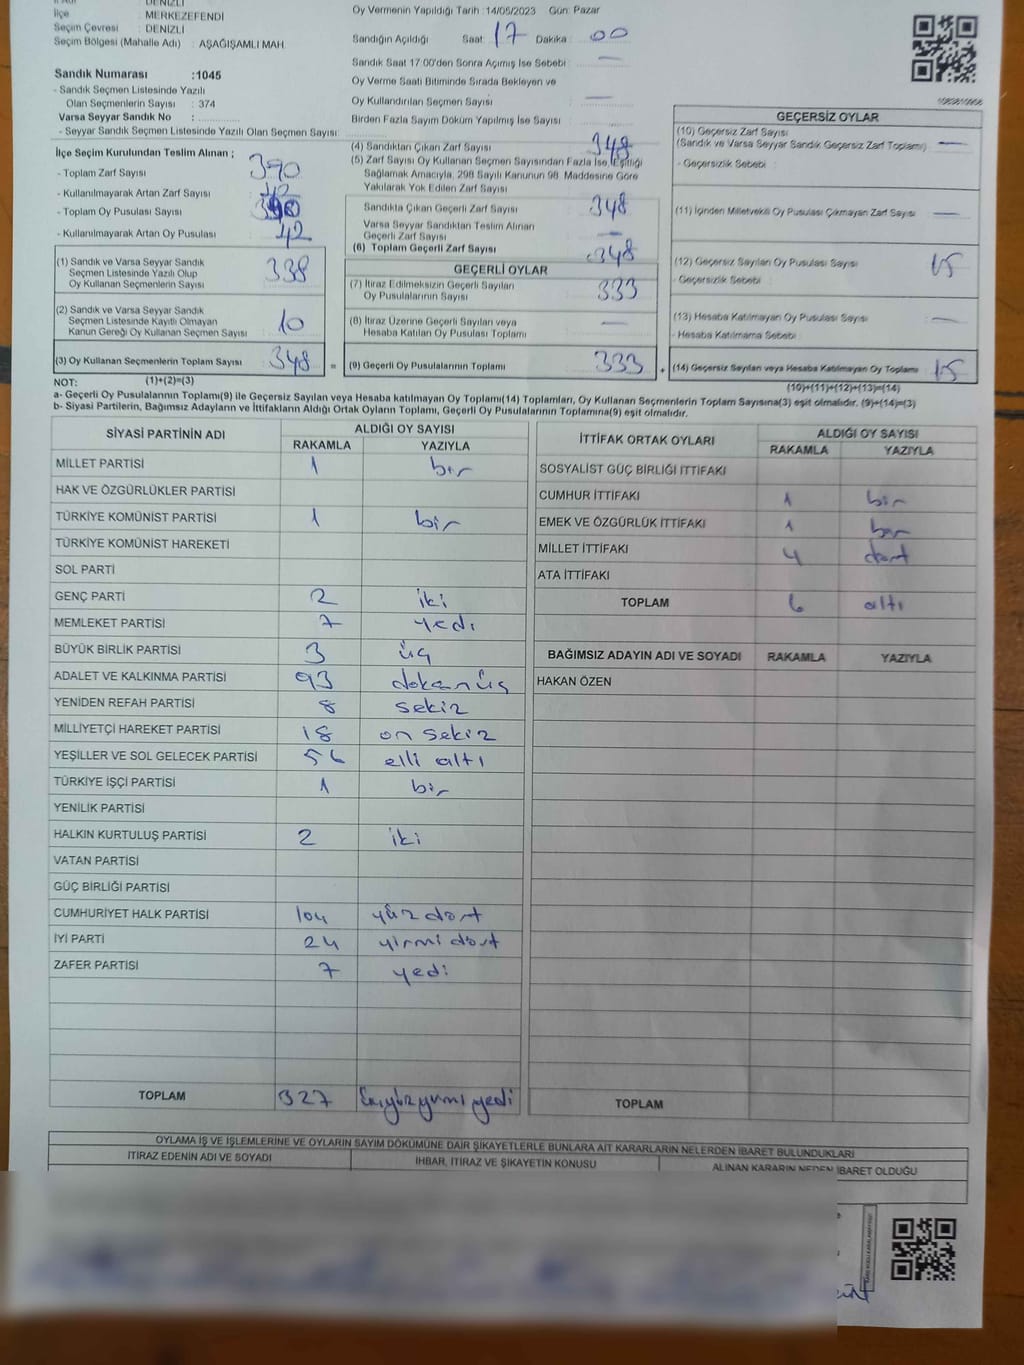 DENİZLİ
İlçe : MERKEZEFENDİ
Seçim Çevresi : DENİZLİ
Seçim Bölgesi (Mahalle Adı) : AŞAĞIŞAMLI MAH.
Sandık Numarası :1045
- Sandık Seçmen Listesinde Yazılı
Olan Seçmenlerin Sayısı : 374
Varsa Seyyar Sandık No :
- Seyyar Sandık Seçmen Listesinde Yazılı Olan Seçmen Sayısı:
İlçe Seçim Kurulundan Teslim Alınan ;
- Toplam Zarf Sayısı 390
- Kullanılmayarak Artan Zarf Sayısı 42
- Toplam Oy Pusulası Sayısı 390
- Kullanılmayarak Artan Oy Pusulası 42
(1) Sandık ve Varsa Seyyar Sandık
Seçmen Listesinde Yazılı Olup
Oy Kullanan Seçmenlerin Sayısı 338
(2) Sandık ve Varsa Seyyar Sandık
Seçmen Listesinde Kayıtlı Olmayan
Kanun Gereği Oy Kullanan Seçmen Sayısı 10
(3) Oy Kullanan Seçmenlerin Toplam Sayısı 348 =
Oy Vermenin Yapıldığı Tarih :14/05/2023 Gün: Pazar
Sandığın Açıldığı Saat: 17 Dakika : 00
Sandık Saat 17:00'den Sonra Açılmış İse Sebebi : —
Oy Verme Saati Bitiminde Sırada Bekleyen ve
Oy Kullandırılan Seçmen Sayısı : —
Birden Fazla Sayım Döküm Yapılmış İse Sayısı :
(4) Sandıktan Çıkan Zarf Sayısı 348
(5) Zarf Sayısı Oy Kullanan Seçmen Sayısından Fazla İse, Eşitliği
Sağlamak Amacıyla, 298 Sayılı Kanunun 98. Maddesine Göre
Yakılarak Yok Edilen Zarf Sayısı
Sandıkta Çıkan Geçerli Zarf Sayısı 348
Varsa Seyyar Sandıktan Teslim Alınan
Geçerli Zarf Sayısı —
(6) Toplam Geçerli Zarf Sayısı 348
GEÇERLİ OYLAR
(7) İtiraz Edilmeksizin Geçerli Sayılan
Oy Pusulalarının Sayısı 333
(8) İtiraz Üzerine Geçerli Sayılan veya
Hesaba Katılan Oy Pusulası Toplamı —
(9) Geçerli Oy Pusulalarının Toplamı 333 +
GEÇERSİZ OYLAR
(10) Geçersiz Zarf Sayısı
(Sandık ve Varsa Seyyar Sandık Geçersiz Zarf Toplamı) —
- Geçersizlik Sebebi :
(11) İçinden Milletvekili Oy Pusulası Çıkmayan Zarf Sayısı —
(12) Geçersiz Sayılan Oy Pusulası Sayısı 15
- Geçersizlik Sebebi :
(13) Hesaba Katılmayan Oy Pusulası Sayısı —
- Hesaba Katılmama Sebebi :
(14) Geçersiz Sayılan veya Hesaba Katılmayan Oy Toplamı 15
NOT: (1)+(2)=(3) (10)+(11)+(12)+(13)=(14)
a- Geçerli Oy Pusulalarının Toplamı(9) ile Geçersiz Sayılan veya Hesaba katılmayan Oy Toplamı(14) Toplamları, Oy Kullanan Seçmenlerin Toplam Sayısına(3) eşit olmalıdır. (9)+(14)=(3)
b- Siyasi Partilerin, Bağımsız Adayların ve İttifakların Aldığı Ortak Oyların Toplamı, Geçerli Oy Pusulalarının Toplamına(9) eşit olmalıdır.
SİYASİ PARTİNİN ADI ALDIĞI OY SAYISI
RAKAMLA YAZIYLA
MİLLET PARTİSİ 1 bir
HAK VE ÖZGÜRLÜKLER PARTİSİ
TÜRKİYE KOMÜNİST PARTİSİ 1 bir
TÜRKİYE KOMÜNİST HAREKETİ
SOL PARTİ
GENÇ PARTİ 2 iki
MEMLEKET PARTİSİ 7 yedi
BÜYÜK BİRLİK PARTİSİ 3 üç
ADALET VE KALKINMA PARTİSİ 93 doksanüç
YENİDEN REFAH PARTİSİ 8 sekiz
MİLLİYETÇİ HAREKET PARTİSİ 18 on sekiz
YEŞİLLER VE SOL GELECEK PARTİSİ 56 elli altı
TÜRKİYE İŞÇİ PARTİSİ 1 bir
YENİLİK PARTİSİ
HALKIN KURTULUŞ PARTİSİ 2 iki
VATAN PARTİSİ
GÜÇ BİRLİĞİ PARTİSİ
CUMHURİYET HALK PARTİSİ 104 yüz dört
İYİ PARTİ 24 yirmi dört
ZAFER PARTİSİ 7 yedi
TOPLAM 327 üçyüzyirmi yedi
İTTİFAK ORTAK OYLARI ALDIĞI OY SAYISI
RAKAMLA YAZIYLA
SOSYALİST GÜÇ BİRLİĞİ İTTİFAKI
CUMHUR İTTİFAKI 1 bir
EMEK VE ÖZGÜRLÜK İTTİFAKI 1 bir
MİLLET İTTİFAKI 4 dört
ATA İTTİFAKI
TOPLAM 6 altı
BAĞIMSIZ ADAYIN ADI VE SOYADI RAKAMLA YAZIYLA
HAKAN ÖZEN
TOPLAM
OYLAMA İŞ VE İŞLEMLERİNE VE OYLARIN SAYIM DÖKÜMÜNE DAİR ŞİKAYETLERLE BUNLARA AİT KARARLARIN NELERDEN İBARET BULUNDUKLARI
İTİRAZ EDENİN ADI VE SOYADI İHBAR, İTİRAZ VE ŞİKAYETİN KONUSU ALINAN KARARIN NEDEN İBARET OLDUĞU